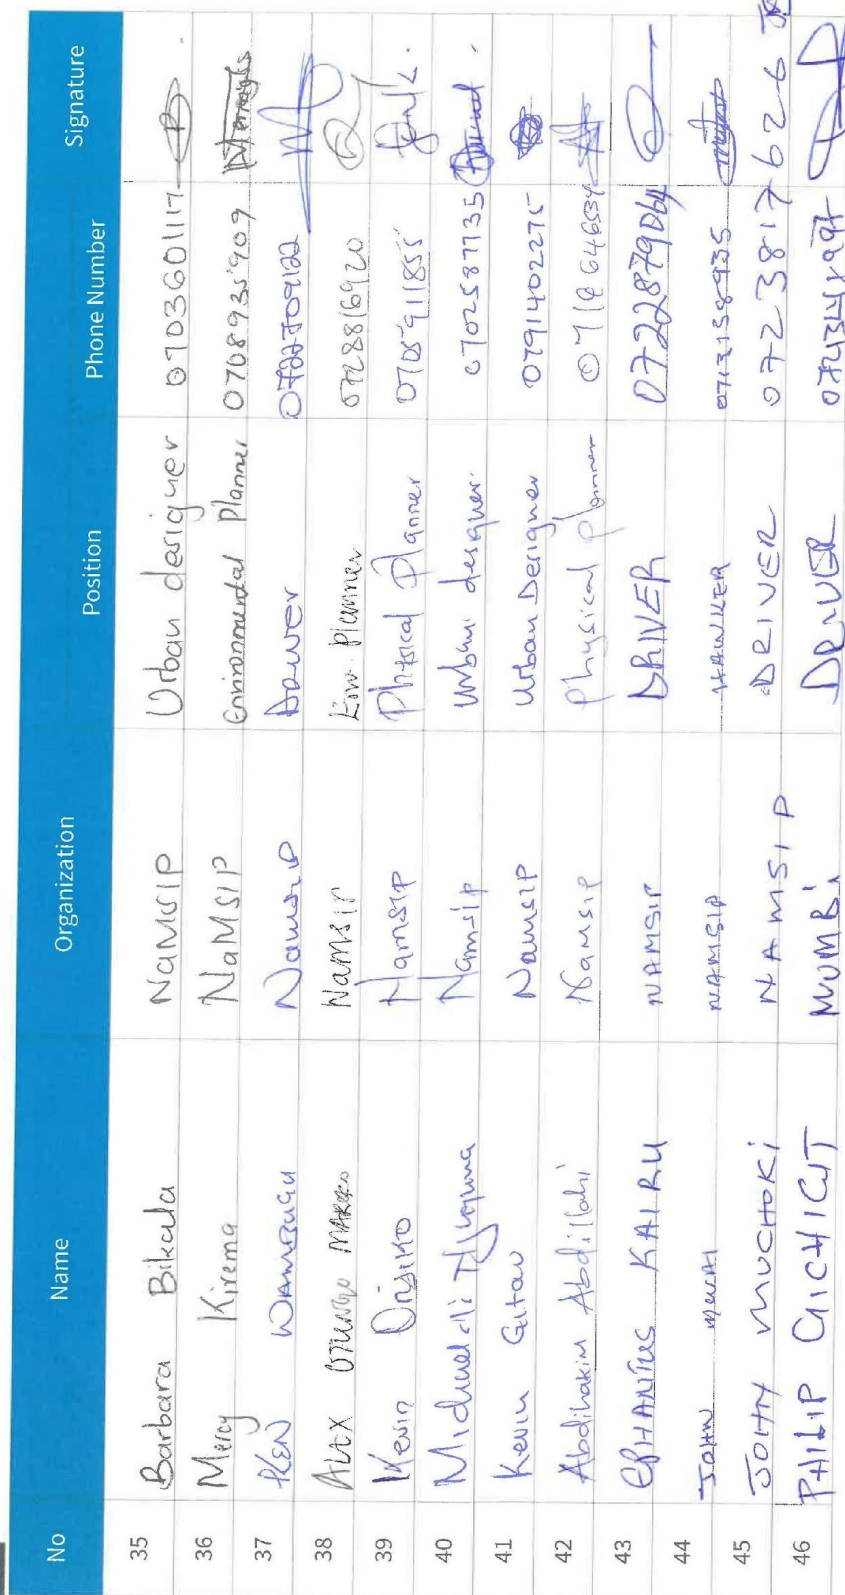 No Name Organization Position Phone Number Signature
35 Barbara Bikala NaMSIP Urban designer 0703601117
36 Mercy Kirema NaMSIP Environmental Planner 0708935909
37 KEN WAMBUGU Namsip 0722709122
38 ALEX NAMSIP Env. Planner 0728816920
39 Kevin Orsiko Namsip Physical Planner 0705911855
40 Namsip Urban designer. 0702587735
41 Kevin Gitau Namsip Urban Designer 0791402275
42 Abdihakim Abdillahi Namsip Physical planner
43 EPHANTUS KAIRU NAMSIP DRIVER 0722879064
44 JOHN NAMSIP 0713158935
45 JOHN MUCHOKI NAMSIP DRIVER 0723817626
46 PHILIP DRIVER